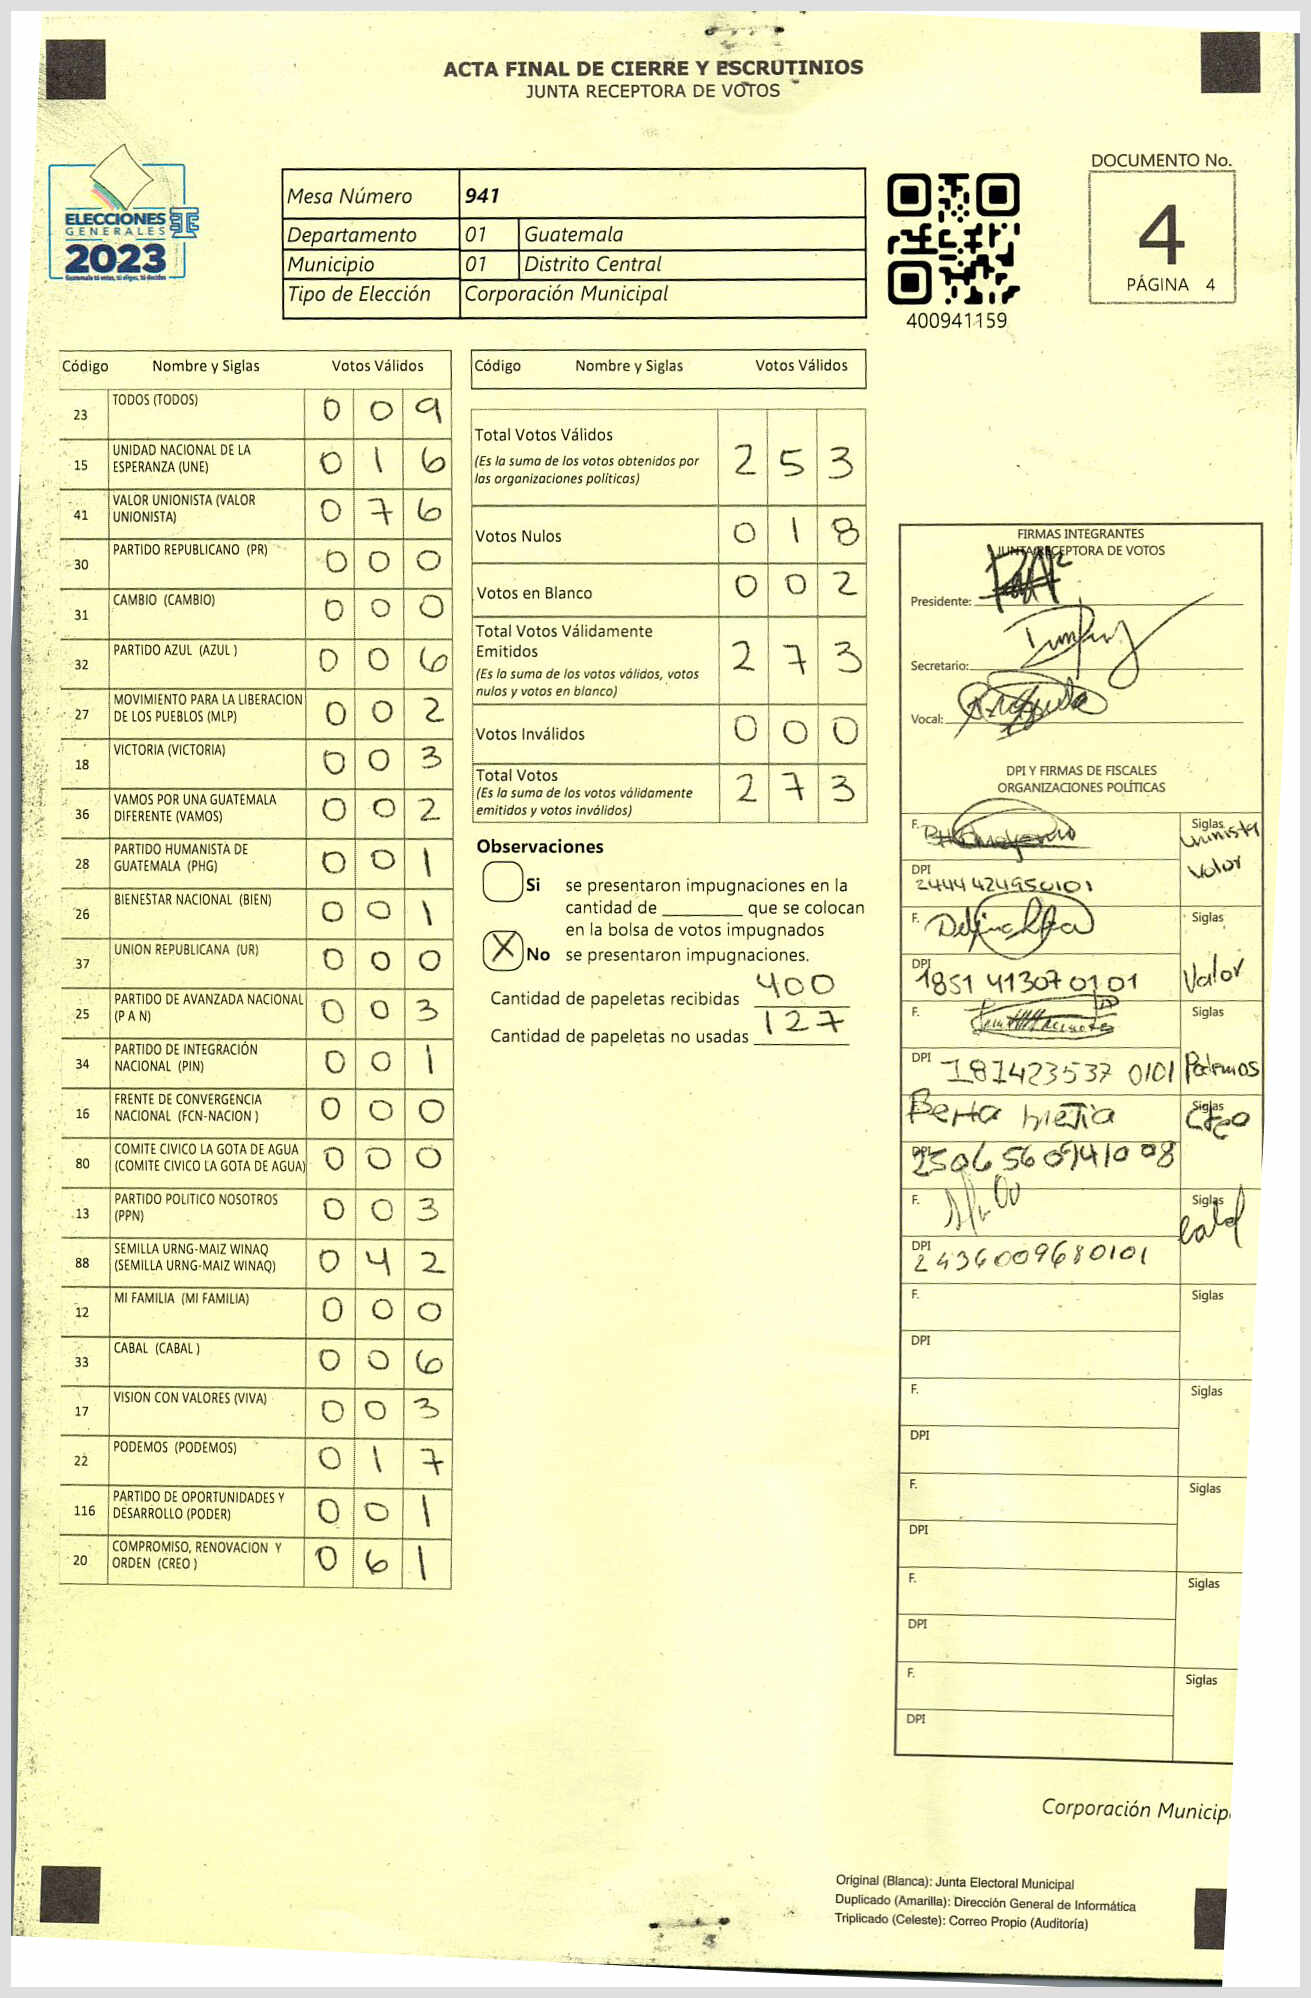 ACTA FINAL DE CIERRE Y ESCRUTINIOS
JUNTA RECEPTORA DE VOTOS
ELECCIONES
GENERALES
2023
Guatemala tú votas, tú eliges, tú decides
Mesa Número 941
Departamento 01 Guatemala
Municipio 01 Distrito Central
Tipo de Elección Corporación Municipal
400941159
DOCUMENTO No.
4
PÁGINA 4
Código Nombre y Siglas Votos Válidos
23 TODOS (TODOS) 0 0 9
15 UNIDAD NACIONAL DE LA ESPERANZA (UNE) 0 1 6
41 VALOR UNIONISTA (VALOR UNIONISTA) 0 7 6
30 PARTIDO REPUBLICANO (PR) 0 0 0
31 CAMBIO (CAMBIO) 0 0 0
32 PARTIDO AZUL (AZUL ) 0 0 6
27 MOVIMIENTO PARA LA LIBERACION DE LOS PUEBLOS (MLP) 0 0 2
18 VICTORIA (VICTORIA) 0 0 3
36 VAMOS POR UNA GUATEMALA DIFERENTE (VAMOS) 0 0 2
28 PARTIDO HUMANISTA DE GUATEMALA (PHG) 0 0 1
26 BIENESTAR NACIONAL (BIEN) 0 0 1
37 UNION REPUBLICANA (UR) 0 0 0
25 PARTIDO DE AVANZADA NACIONAL (P A N) 0 0 3
34 PARTIDO DE INTEGRACIÓN NACIONAL (PIN) 0 0 1
16 FRENTE DE CONVERGENCIA NACIONAL (FCN-NACION ) 0 0 0
80 COMITE CIVICO LA GOTA DE AGUA (COMITE CIVICO LA GOTA DE AGUA) 0 0 0
13 PARTIDO POLITICO NOSOTROS (PPN) 0 0 3
88 SEMILLA URNG-MAIZ WINAQ (SEMILLA URNG-MAIZ WINAQ) 0 4 2
12 MI FAMILIA (MI FAMILIA) 0 0 0
33 CABAL (CABAL ) 0 0 6
17 VISION CON VALORES (VIVA) 0 0 3
22 PODEMOS (PODEMOS) 0 1 7
116 PARTIDO DE OPORTUNIDADES Y DESARROLLO (PODER) 0 0 1
20 COMPROMISO, RENOVACION Y ORDEN (CREO ) 0 6 1
Código Nombre y Siglas Votos Válidos
Total Votos Válidos 2 5 3
(Es la suma de los votos obtenidos por
las organizaciones políticas)
Votos Nulos 0 1 8
Votos en Blanco 0 0 2
Total Votos Válidamente
Emitidos 2 7 3
(Es la suma de los votos válidos, votos
nulos y votos en blanco)
Votos Inválidos 0 0 0
Total Votos 2 7 3
(Es la suma de los votos válidamente
emitidos y votos inválidos)
Observaciones
Si se presentaron impugnaciones en la
cantidad de ________ que se colocan
en la bolsa de votos impugnados
X No se presentaron impugnaciones.
Cantidad de papeletas recibidas 400
Cantidad de papeletas no usadas 127
FIRMAS INTEGRANTES
JUNTA RECEPTORA DE VOTOS
Presidente:
Secretario:
Vocal:
DPI Y FIRMAS DE FISCALES
ORGANIZACIONES POLÍTICAS
F. Siglas
Unionista
Valor
DPI
2444424950101
F. Siglas
DPI
1851413070101 Valor
F. Siglas
DPI 181423537 0101 Podemos
Berta Siglas
Creo
DPI
F. Siglas
Cabal
DPI
2436009680101
F. Siglas
DPI
F. Siglas
DPI
F. Siglas
DPI
F. Siglas
DPI
F. Siglas
DPI
Corporación Municip
Original (Blanca): Junta Electoral Municipal
Duplicado (Amarilla): Dirección General de Informática
Triplicado (Celeste): Correo Propio (Auditoría)